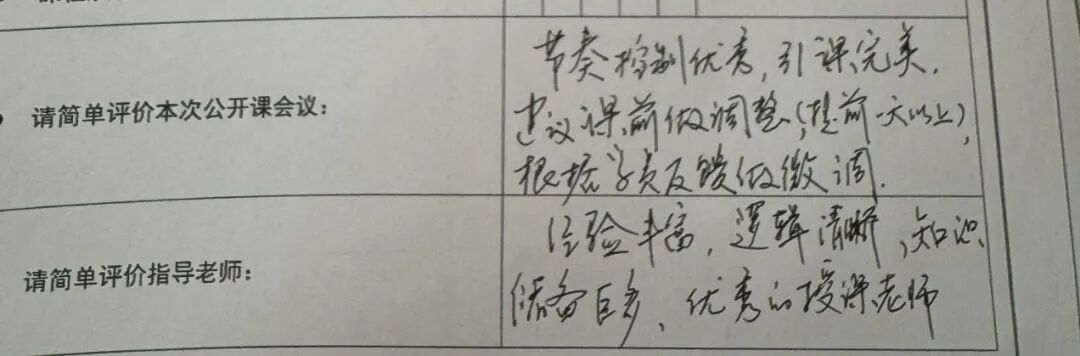 请简单评价本次公开课会议：
节奏控制优秀，引课完美．
建议课前做调整（提前一天以上），
根据学员反馈做微调．
请简单评价指导老师：
经验丰富，逻辑清晰，知识
储备巨多、优秀的授课老师